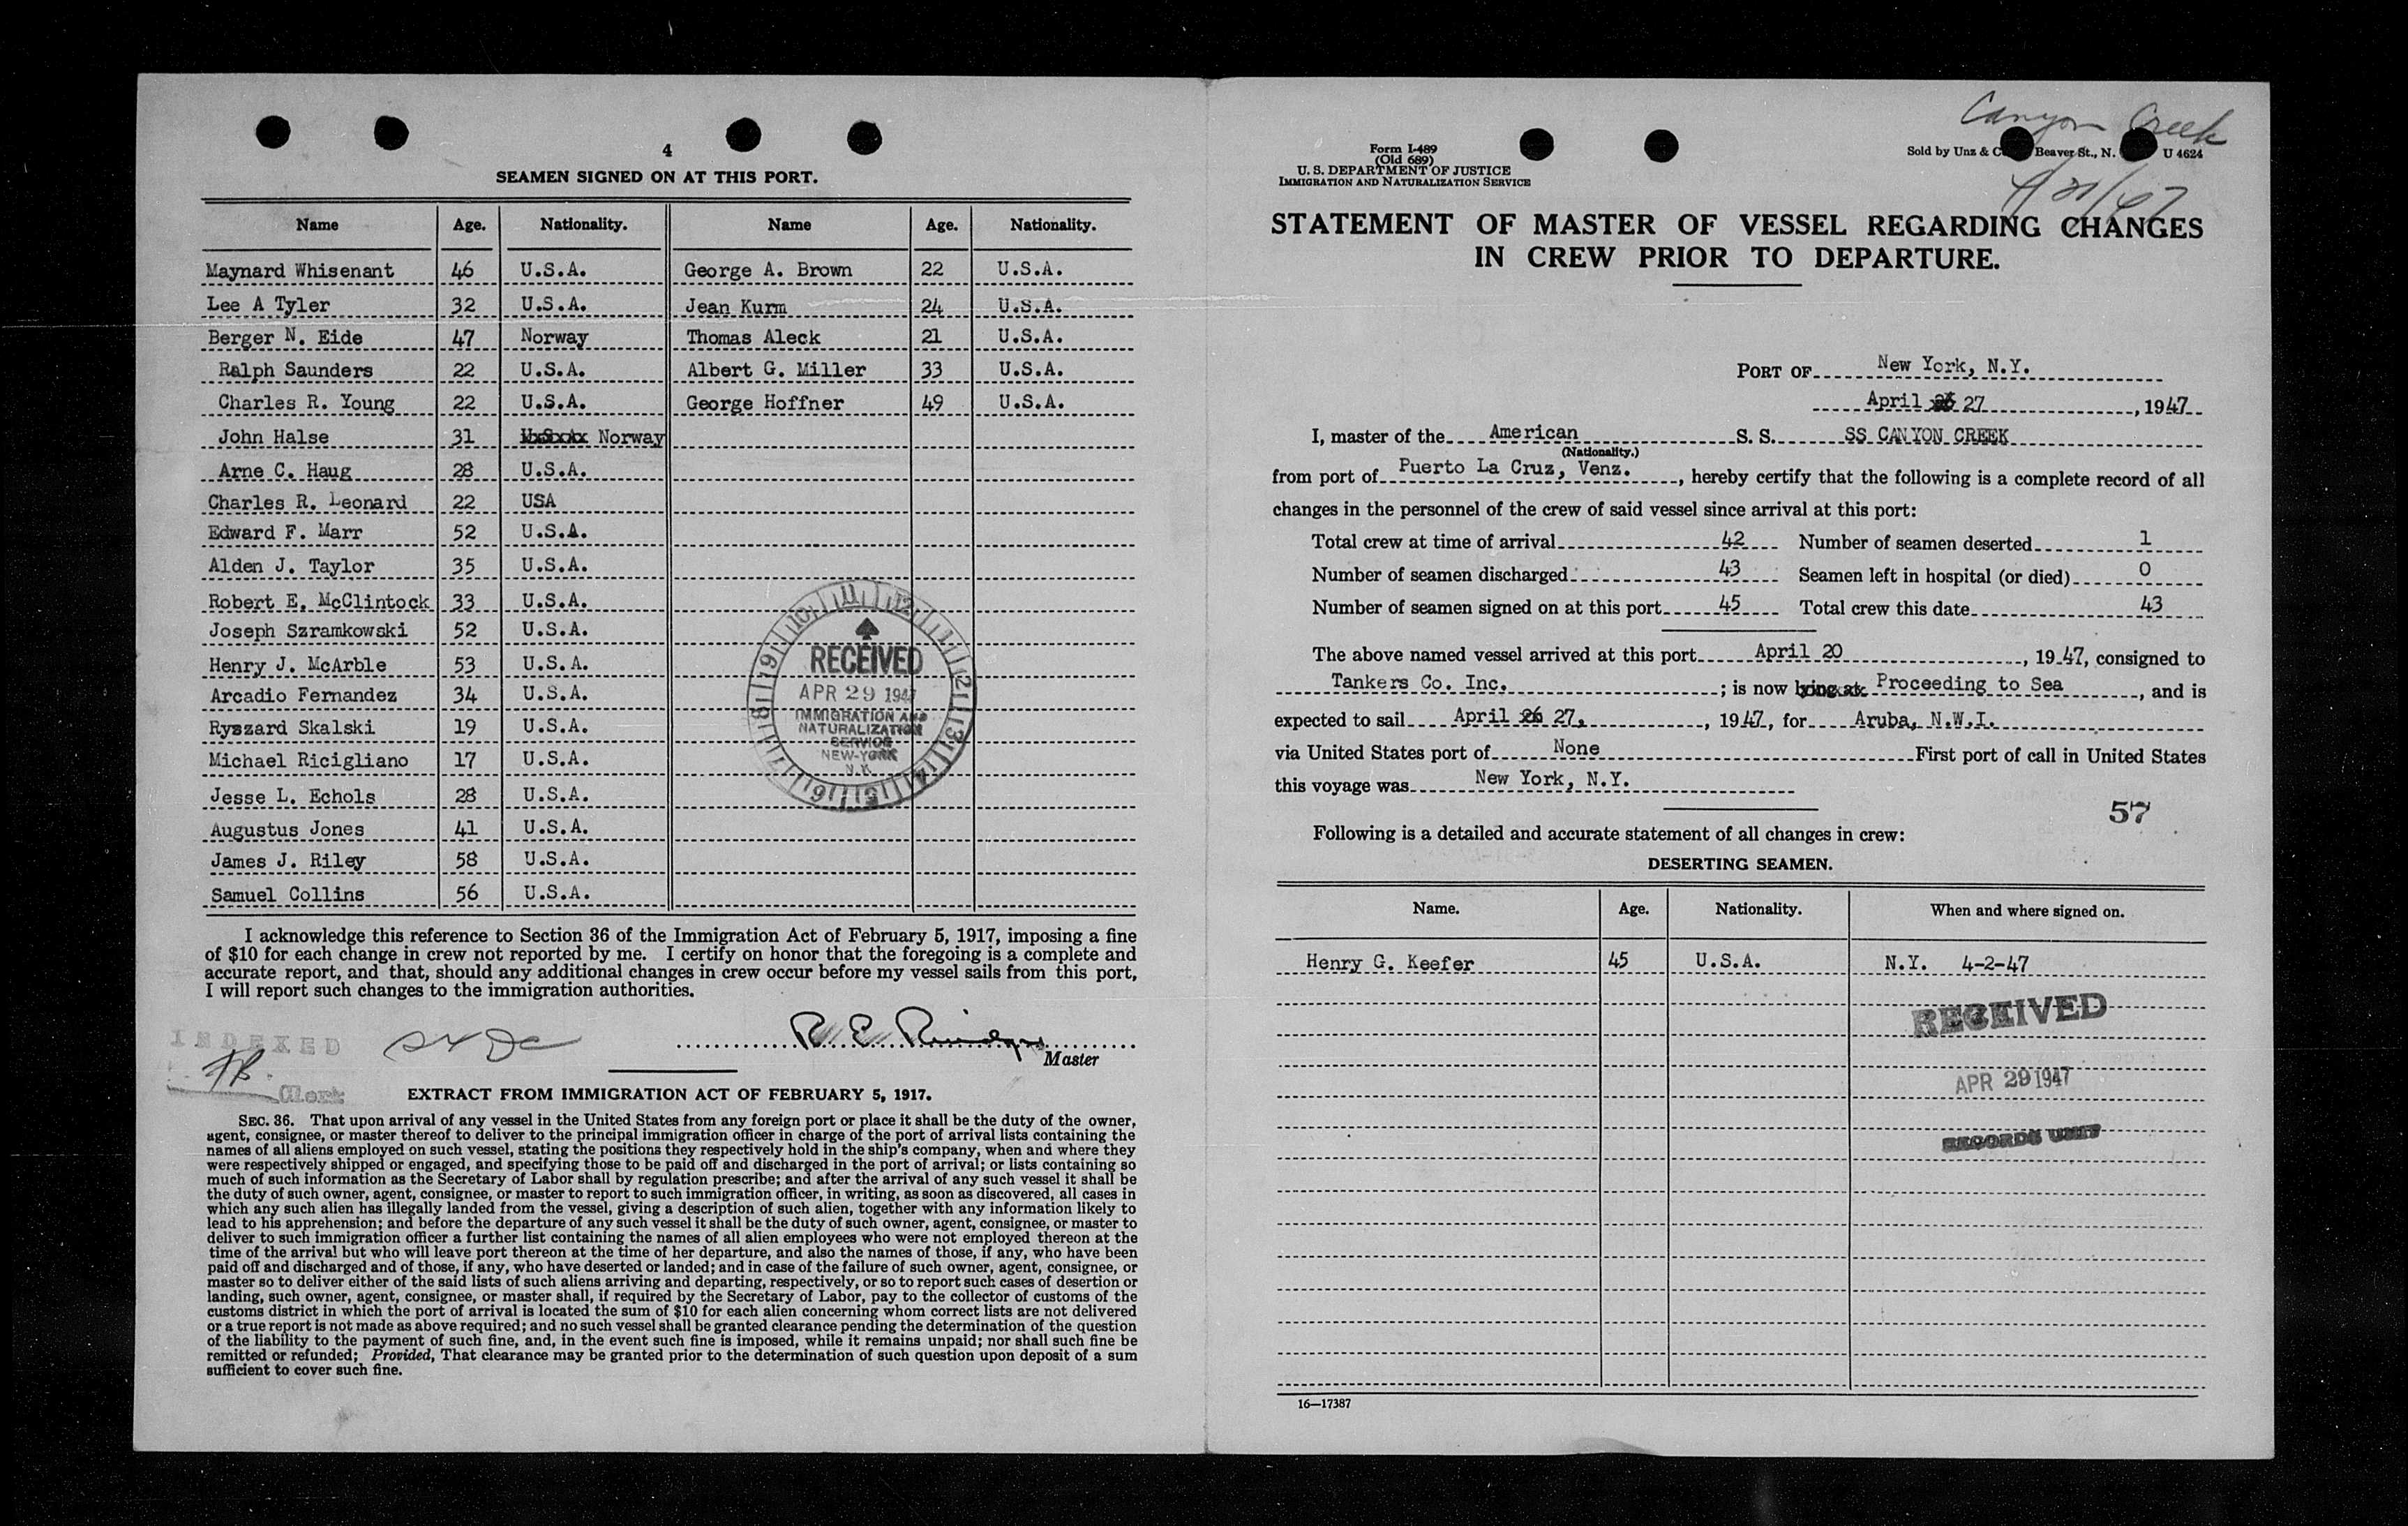 4
SEAMEN SIGNED ON AT THIS PORT.
Name Age. Nationality. Name Age. Nationality.
Maynard Whisenant 46 U.S.A. George A. Brown 22 U.S.A.
Lee A Tyler 32 U.S.A. Jean Kurm 24 U.S.A.
Berger N. Eide 47 Norway Thomas Aleck 21 U.S.A.
Ralph Saunders 22 U.S.A. Albert G. Miller 33 U.S.A.
Charles R. Young 22 U.S.A. George Hoffner 49 U.S.A.
John Halse 31 Norway
Arne C. Haug 28 U.S.A.
Charles R. Leonard 22 USA
Edward F. Marr 52 U.S.A.
Alden J. Taylor 35 U.S.A.
Robert E. McClintock 33 U.S.A.
Joseph Szramkowski 52 U.S.A.
Henry J. McArble 53 U.S.A.
Arcadio Fernandez 34 U.S.A.
Ryszard Skalski 19 U.S.A.
Michael Ricigliano 17 U.S.A.
Jesse L. Echols 28 U.S.A.
Augustus Jones 41 U.S.A.
James J. Riley 58 U.S.A.
Samuel Collins 56 U.S.A.
RECEIVED
APR 29 1947
IMMIGRATION AND
NATURALIZATION
SERVICE
NEW-YORK
N.Y.
I acknowledge this reference to Section 36 of the Immigration Act of February 5, 1917, imposing a fine
of $10 for each change in crew not reported by me. I certify on honor that the foregoing is a complete and
accurate report, and that, should any additional changes in crew occur before my vessel sails from this port,
I will report such changes to the immigration authorities.
INDEXED
R E
Master
Clerk
EXTRACT FROM IMMIGRATION ACT OF FEBRUARY 5, 1917.
SEC. 36. That upon arrival of any vessel in the United States from any foreign port or place it shall be the duty of the owner,
agent, consignee, or master thereof to deliver to the principal immigration officer in charge of the port of arrival lists containing the
names of all aliens employed on such vessel, stating the positions they respectively hold in the ship's company, when and where they
were respectively shipped or engaged, and specifying those to be paid off and discharged in the port of arrival; or lists containing so
much of such information as the Secretary of Labor shall by regulation prescribe; and after the arrival of any such vessel it shall be
the duty of such owner, agent, consignee, or master to report to such immigration officer, in writing, as soon as discovered, all cases in
which any such alien has illegally landed from the vessel, giving a description of such alien, together with any information likely to
lead to his apprehension; and before the departure of any such vessel it shall be the duty of such owner, agent, consignee, or master to
deliver to such immigration officer a further list containing the names of all alien employees who were not employed thereon at the
time of the arrival but who will leave port thereon at the time of her departure, and also the names of those, if any, who have been
paid off and discharged and of those, if any, who have deserted or landed; and in case of the failure of such owner, agent, consignee, or
master so to deliver either of the said lists of such aliens arriving and departing, respectively, or so to report such cases of desertion or
landing, such owner, agent, consignee, or master shall, if required by the Secretary of Labor, pay to the collector of customs of the
customs district in which the port of arrival is located the sum of $10 for each alien concerning whom correct lists are not delivered
or a true report is not made as above required; and no such vessel shall be granted clearance pending the determination of the question
of the liability to the payment of such fine, and, in the event such fine is imposed, while it remains unpaid; nor shall such fine be
remitted or refunded; Provided, That clearance may be granted prior to the determination of such question upon deposit of a sum
sufficient to cover such fine.
Canyon Creek
Form I-489
(Old 689)
U. S. DEPARTMENT OF JUSTICE
IMMIGRATION AND NATURALIZATION SERVICE
Sold by Unz & Beaver St., N. U 4624
STATEMENT OF MASTER OF VESSEL REGARDING CHANGES
IN CREW PRIOR TO DEPARTURE.
PORT OF New York, N.Y.
April 27, 1947
I, master of the American S. S. SS CANYON CREEK
(Nationality.)
from port of Puerto La Cruz, Venz., hereby certify that the following is a complete record of all
changes in the personnel of the crew of said vessel since arrival at this port:
Total crew at time of arrival 42 Number of seamen deserted 1
Number of seamen discharged 43 Seamen left in hospital (or died) 0
Number of seamen signed on at this port 45 Total crew this date 43
The above named vessel arrived at this port April 20, 1947, consigned to
Tankers Co. Inc.; is now lying at Proceeding to Sea, and is
expected to sail April 26 27, 1947, for Aruba, N.W.I.
via United States port of None First port of call in United States
this voyage was New York, N.Y.
57
Following is a detailed and accurate statement of all changes in crew:
DESERTING SEAMEN.
Name. Age. Nationality. When and where signed on.
Henry G. Keefer 45 U.S.A. N.Y. 4-2-47
RECEIVED
APR 29 1947
RECORDS UNIT
16—17387